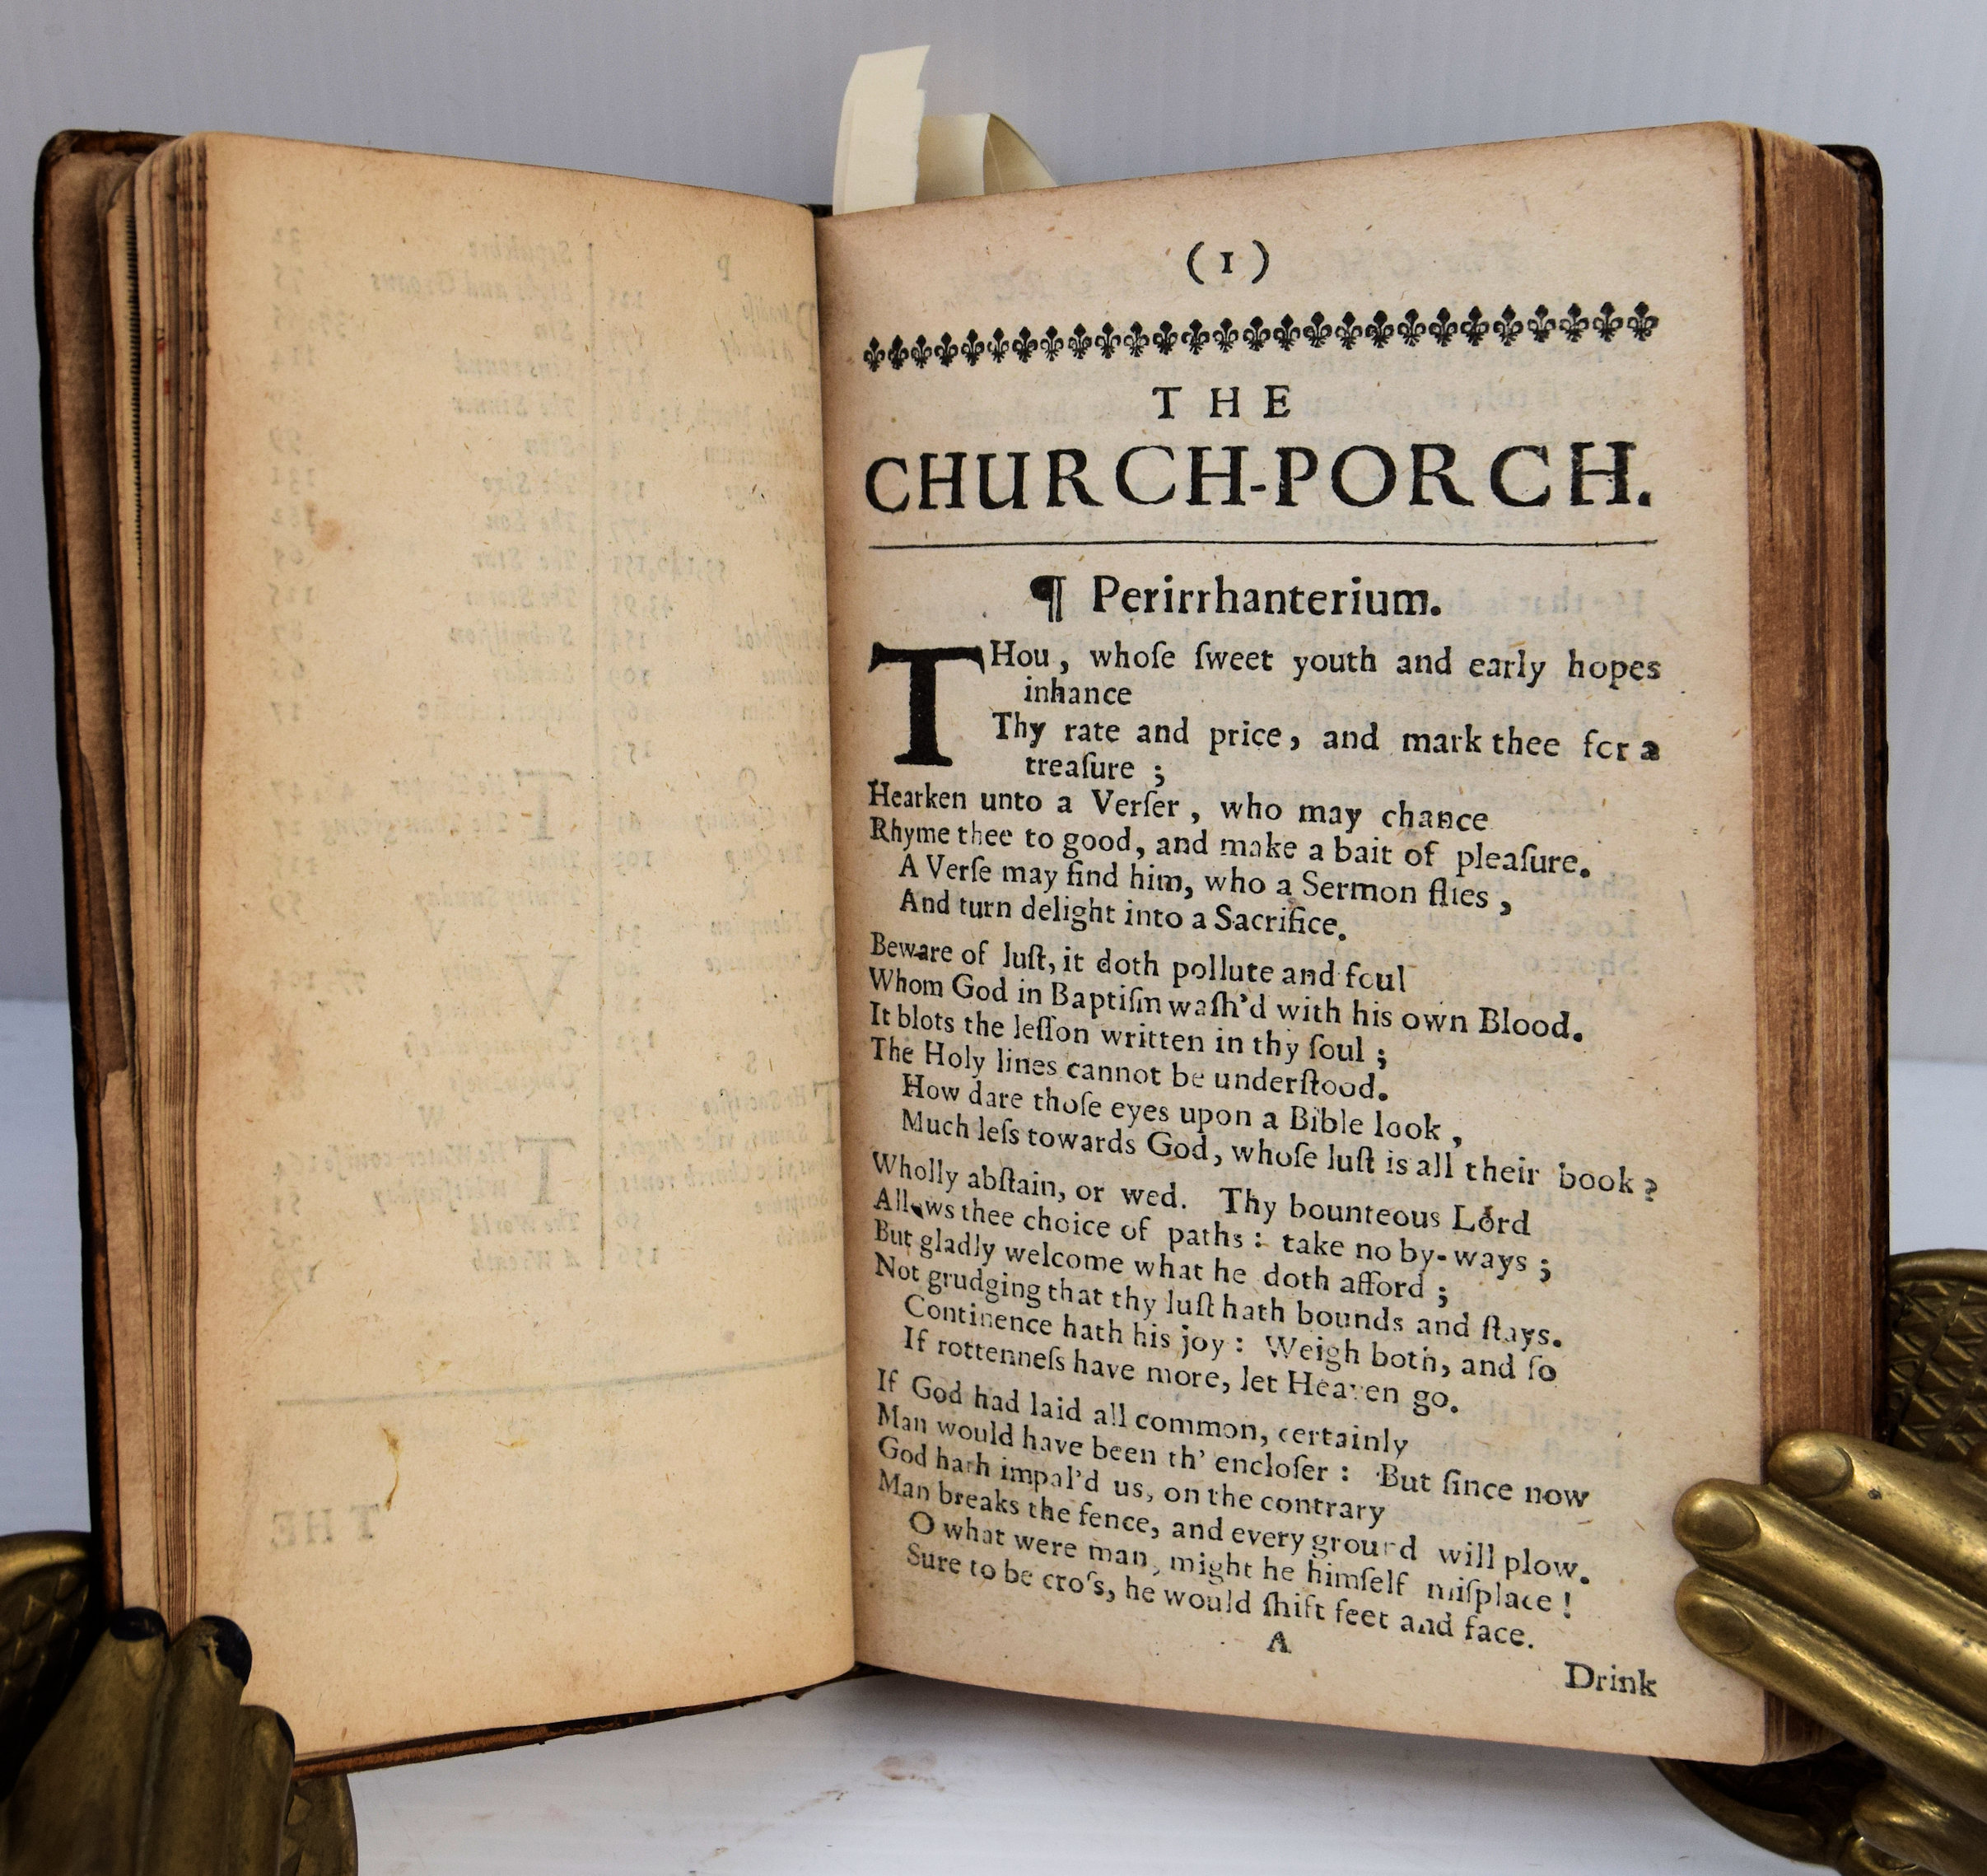 (1)
THE
CHURCH-PORCH.
¶ Perirrhanterium.
THou, whoſe ſweet youth and early hopes
inhance
Thy rate and price, and mark thee for a
treaſure ;
Hearken unto a Verſer, who may chance
Rhyme thee to good, and make a bait of pleaſure.
A Verſe may find him, who a Sermon flies,
And turn delight into a Sacrifice.
Beware of luſt, it doth pollute and foul
Whom God in Baptiſm waſh'd with his own Blood.
It blots the leſſon written in thy ſoul ;
The Holy lines cannot be underſtood.
How dare thoſe eyes upon a Bible look,
Much leſs towards God, whoſe luſt is all their book ?
Wholly abſtain, or wed. Thy bounteous Lord
Allows thee choice of paths : take no by-ways ;
But gladly welcome what he doth afford ;
Not grudging that thy luſt hath bounds and ſtays.
Continence hath his joy : Weigh both, and ſo
If rottenneſs have more, let Heaven go.
If God had laid all common, certainly
Man would have been th' encloſer : But ſince now
God hath impal'd us, on the contrary
Man breaks the fence, and every ground will plow.
O what were man, might he himſelf miſplace !
Sure to be croſs, he would ſhift feet and face.
A
Drink